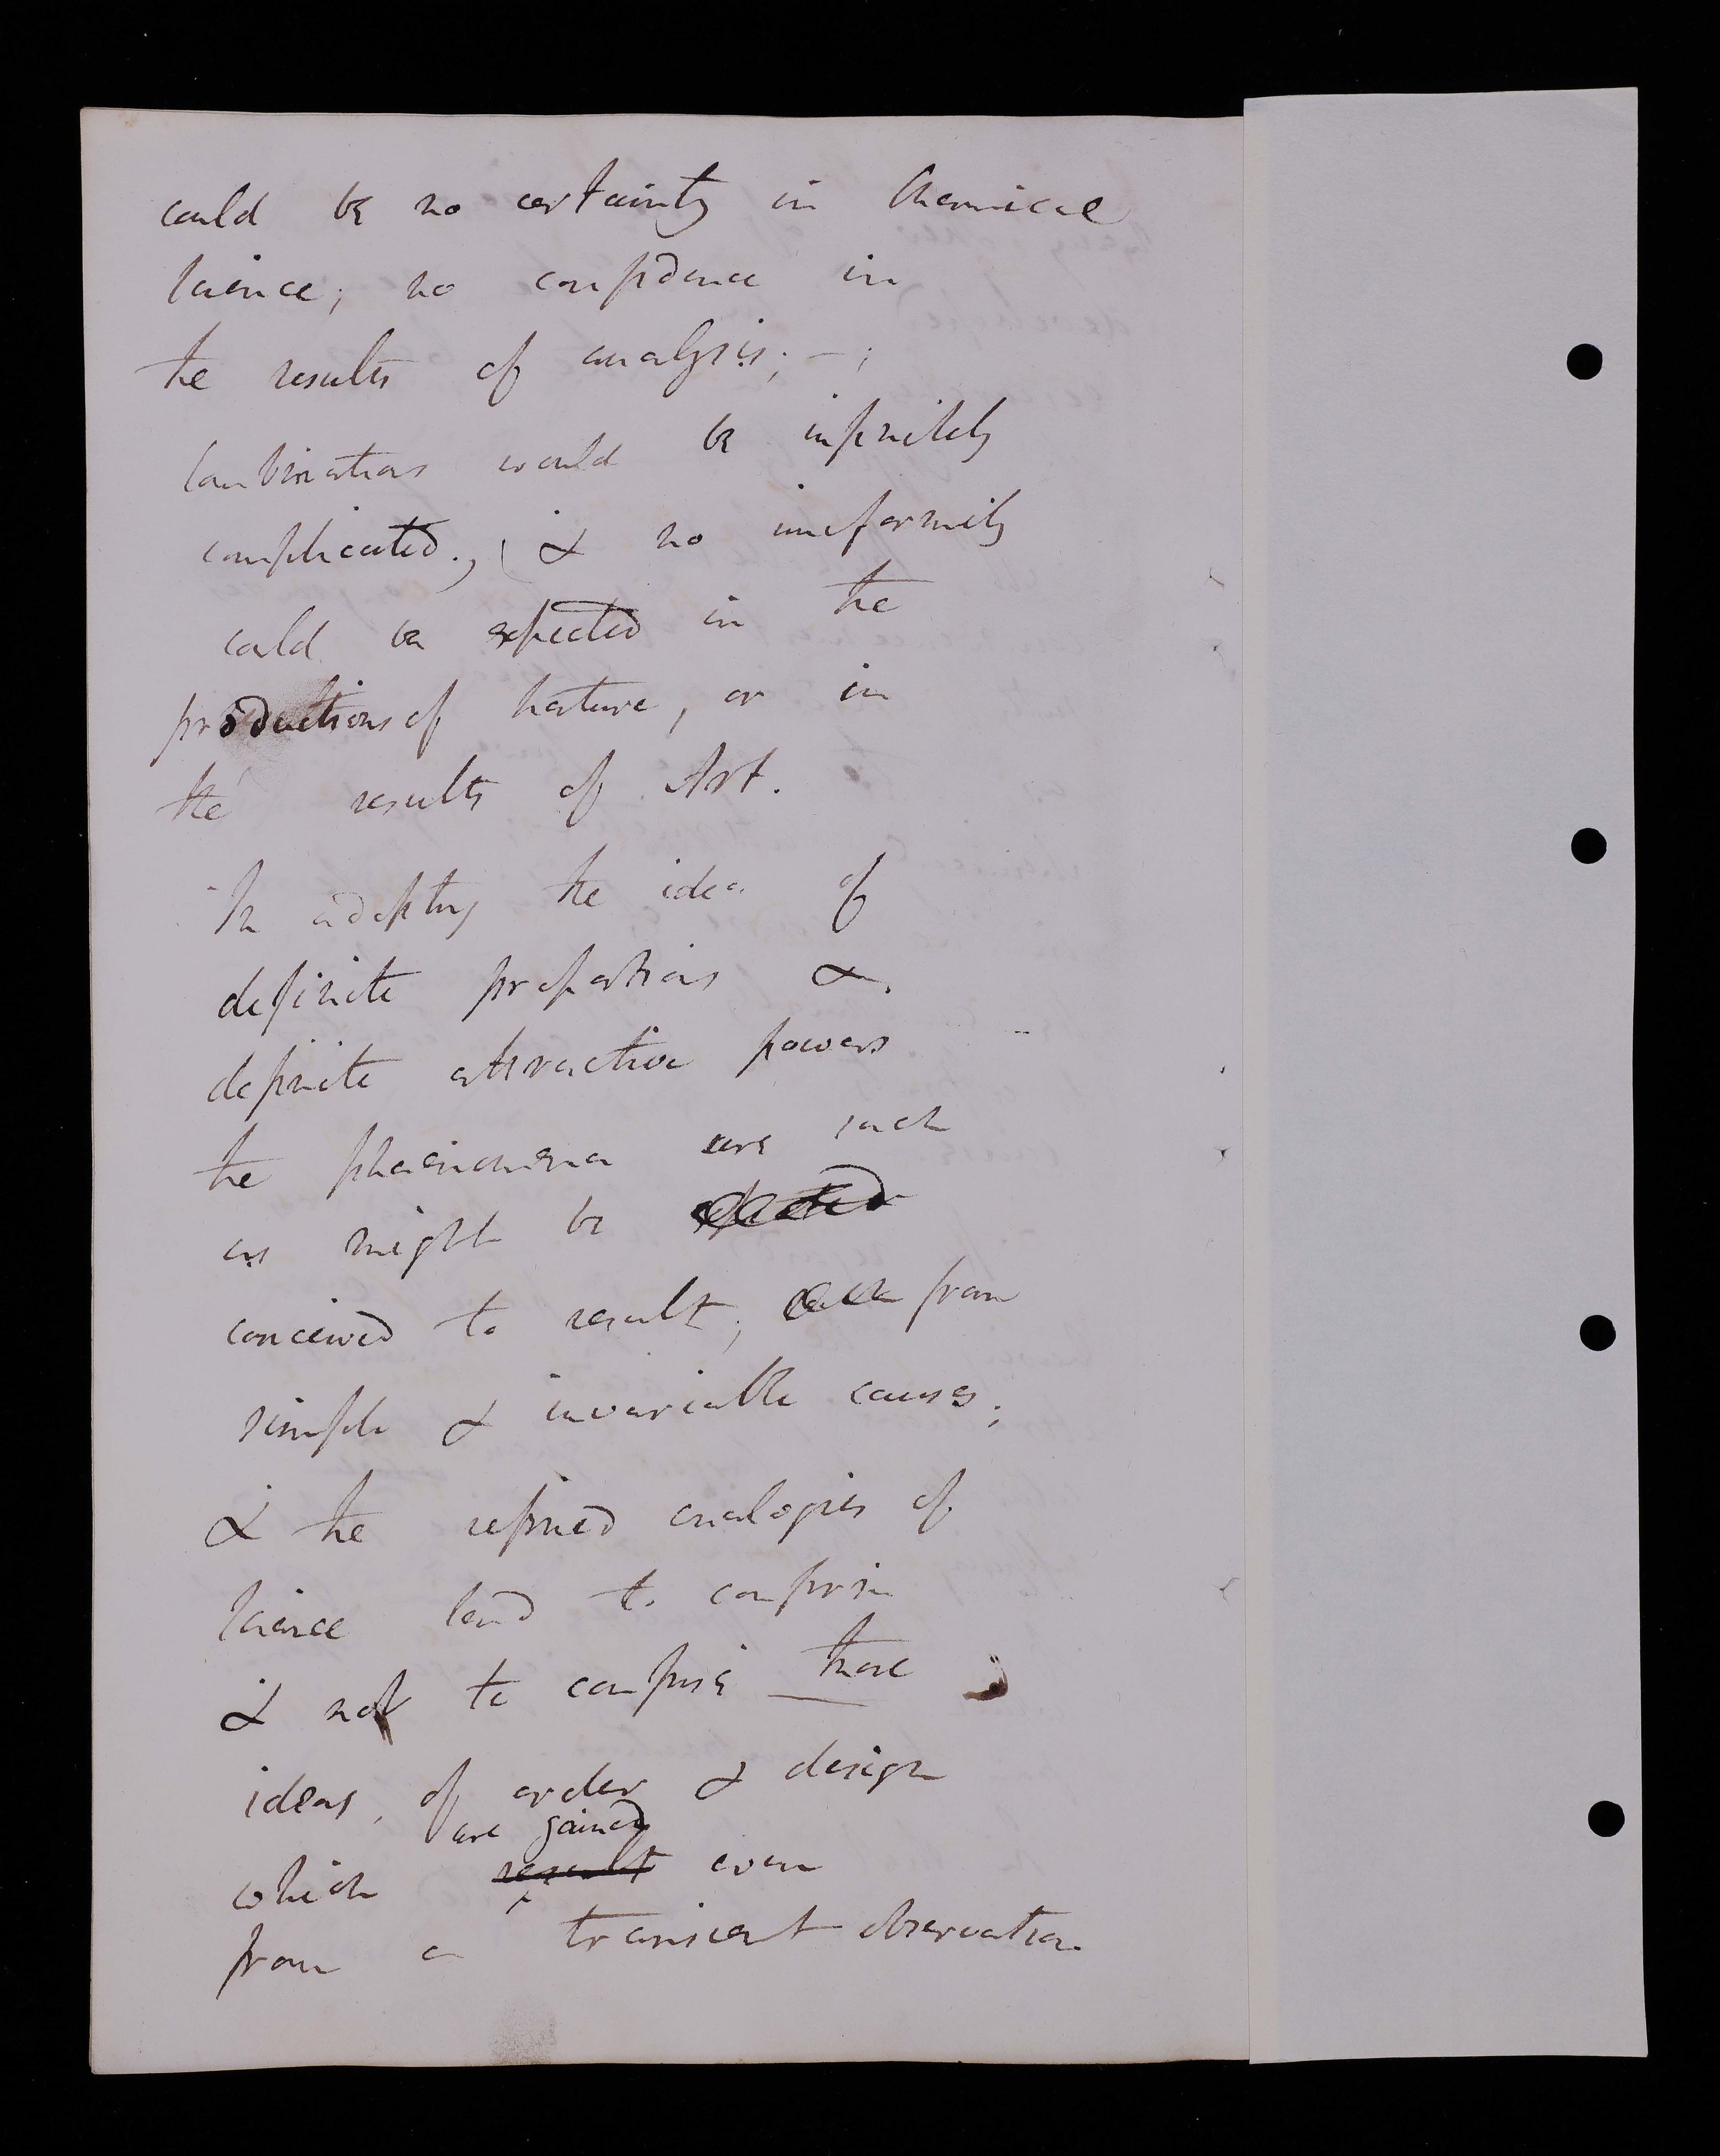 could be no certainty in Chemical
Science; no confidence in
the results of analysis; – ;
Combinations would be infinitely
complicated., & no uniformity
could be expected in the
productions of Nature, or in
the results of Art.
- In adopting the idea of
definite proportions &
definite attractive powers
the phaenomena are such
as might be expected
conceived to result, from
simple & invariable causes;
& the refined analogies of
Science tend to confirm
& not to confuse those
ideas, of order & design
are gained
which result even
from a transient observation.